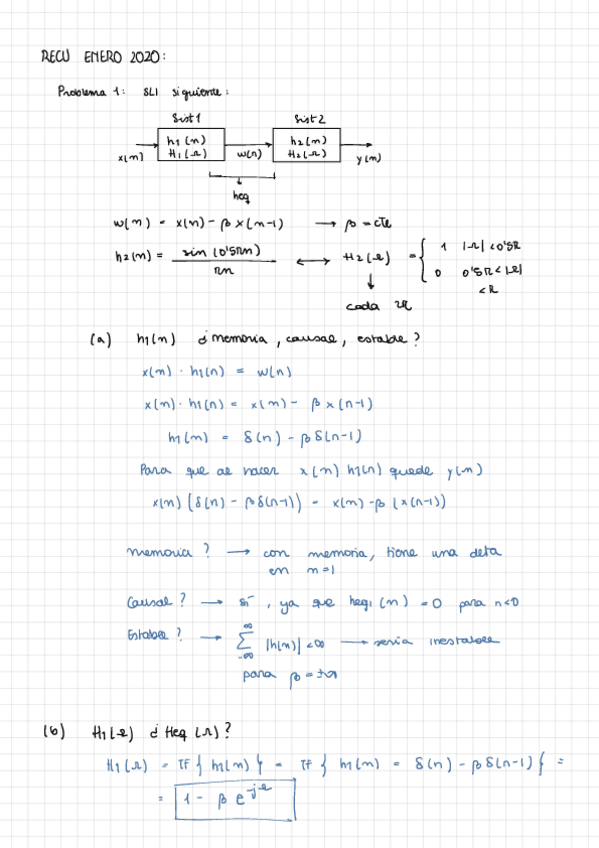 RECU ENERO 2020:
Problema 1: SLI siguiente:
Sist 1 Sist 2
x(n) h1(n) H1(Ω) w(n) h2(n) H2(Ω) y(n)
heq
w(n) = x(n) - β x(n-1) → β = cte
h2(n) = sin(0'5πn) / πn ↔ H2(Ω) = { 1 |Ω| < 0'5π
0 0'5π < |Ω| < π
cada 2π
(a) h1(n) ¿memoria, causal, estable?
x(n) · h1(n) = w(n)
x(n) · h1(n) = x(n) - β x(n-1)
h1(n) = δ(n) - β δ(n-1)
Para que al hacer x(n) h1(n) quede y(n)
x(n) (δ(n) - βδ(n-1)) = x(n) - β (x(n-1))
memoria? → con memoria, tiene una delta
en n=1
Causal? → sí, ya que heq1(n) = 0 para n<0
Estable? → ∞ Σ -∞ |h(n)| < ∞ → sería inestable
para β = ±∞
(b) H1(Ω) ¿Heq(Ω)?
H1(Ω) = TF { h1(n) } = TF { h1(n) = δ(n) - β δ(n-1) } =
= 1 - β e^-jΩ